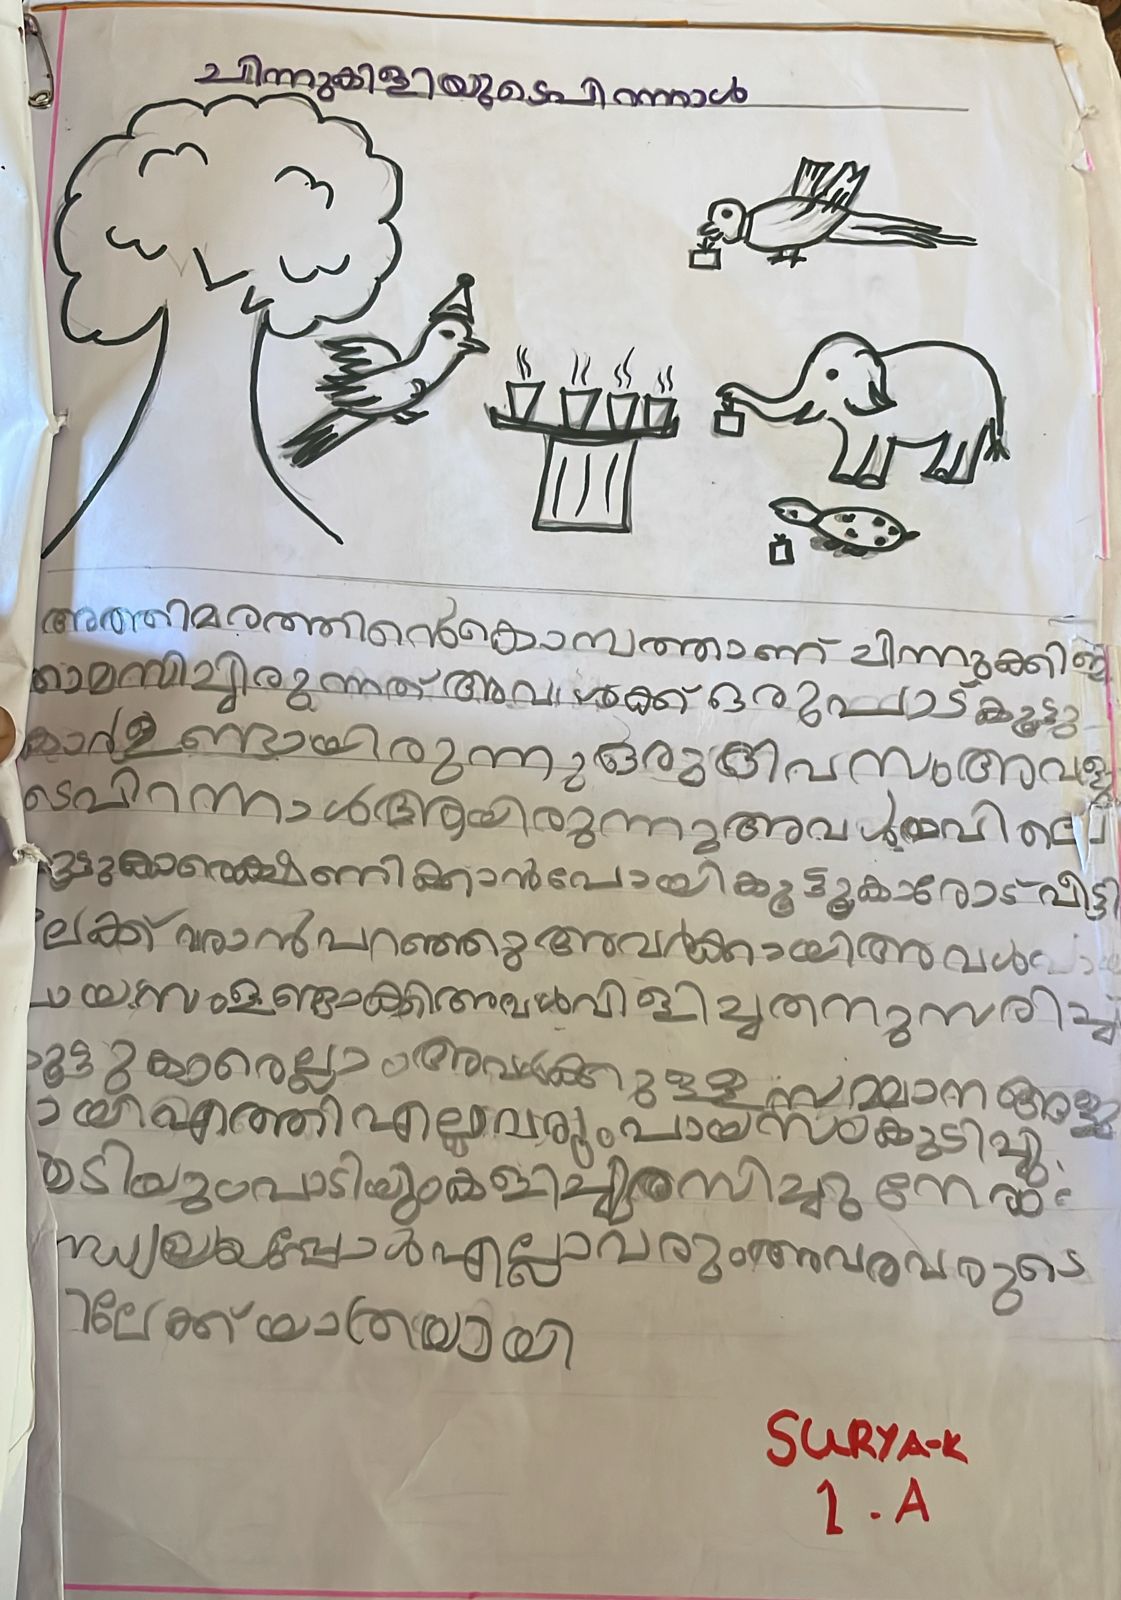 ചിന്നുകിളിയുടെപിറന്നാൾ
അത്തിമരത്തിൻെകൊമ്പത്താണ് ചിന്നുക്കിളി
താമസിച്ചിരുന്നത് അവൾക്ക് ഒരുപ്പാട് കൂട്ടു
കാർഉണ്ടായിരുന്നു ഒരുദിവസംഅവളു
ടെപിറന്നാൾആയിരുന്നുഅവൾ
കൂട്ടുകാരെക്ഷണിക്കാൻപോയി കൂട്ടുകാരോട് വീട്ടി
ലേക്ക് വരാൻപറഞ്ഞുഅവർക്കായിഅവൾപാ
യസംഉണ്ടാക്കിഅവൾവിളിച്ചതനുസരിച്ച്
കൂട്ടുകാരെല്ലാംഅവൾക്കുള്ള സമ്മാനങ്ങളു
മായിഎത്തിഎല്ലാവരുംപായസംകുടിച്ചു.
ആടിയുംപാടിയുംകളിച്ചുരസിച്ചു നേരം
സന്ധ്യയായപ്പോൾഎല്ലാവരുംഅവരവരുടെ
ലേക്ക് യാത്രയായി
SURYA-K
1.A